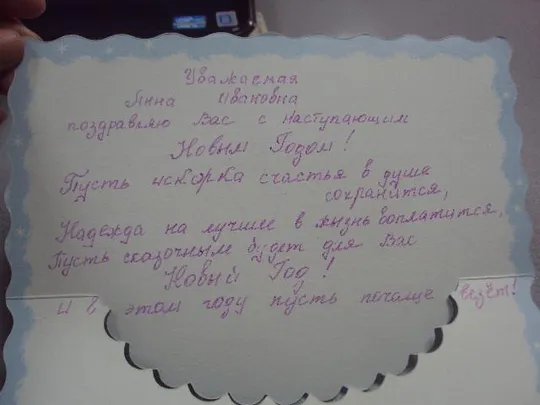 Уважаемая
Анна Ивановна
поздравляю Вас с наступающим
Новым Годом!
Пусть искорка счастья в душе
сохранится,
Надежда на лучшее в жизнь воплатится,
Пусть сказочным будет для Вас
Новый Год!
И в этом году пусть почаще везёт!